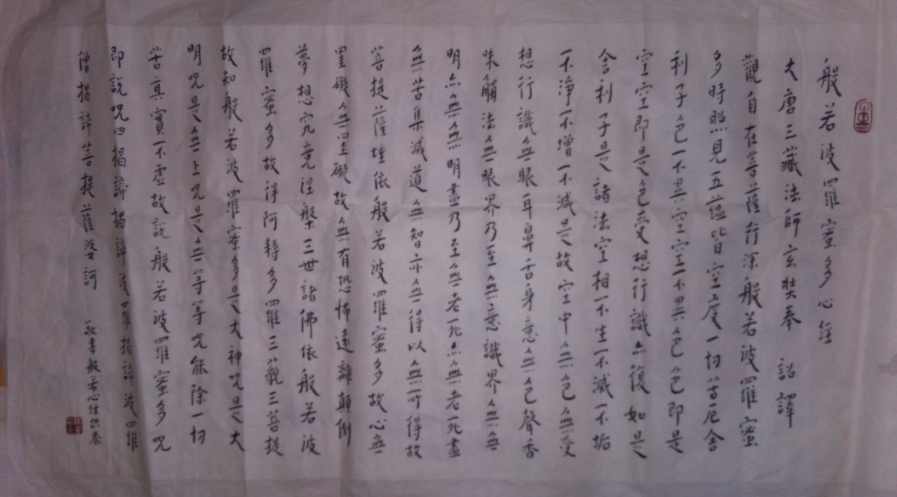 般若波羅蜜多心經
大唐三藏法師玄奘奉 詔譯
觀自在菩薩行深般若波羅蜜
多時照見五蘊皆空度一切苦厄舍
利子色不異空空不異色色即是
空空即是色受想行識亦復如是
舍利子是諸法空相不生不滅不垢
不淨不增不減是故空中無色無受
想行識無眼耳鼻舌身意無色聲香
味觸法無眼界乃至無意識界無無
明亦無無明盡乃至無老死亦無老死盡
無苦集滅道無智亦無得以無所得故
菩提薩埵依般若波羅蜜多故心無
罣礙無罣礙故無有恐怖遠離顛倒
夢想究竟涅槃三世諸佛依般若波
羅蜜多故得阿耨多羅三藐三菩提
故知般若波羅蜜多是大神咒是大
明咒是無上咒是無等等咒能除一切
苦真實不虛故說般若波羅蜜多咒
即說咒曰揭諦揭諦波羅揭諦波羅
僧揭諦菩提薩婆訶
敬書般若心經供養